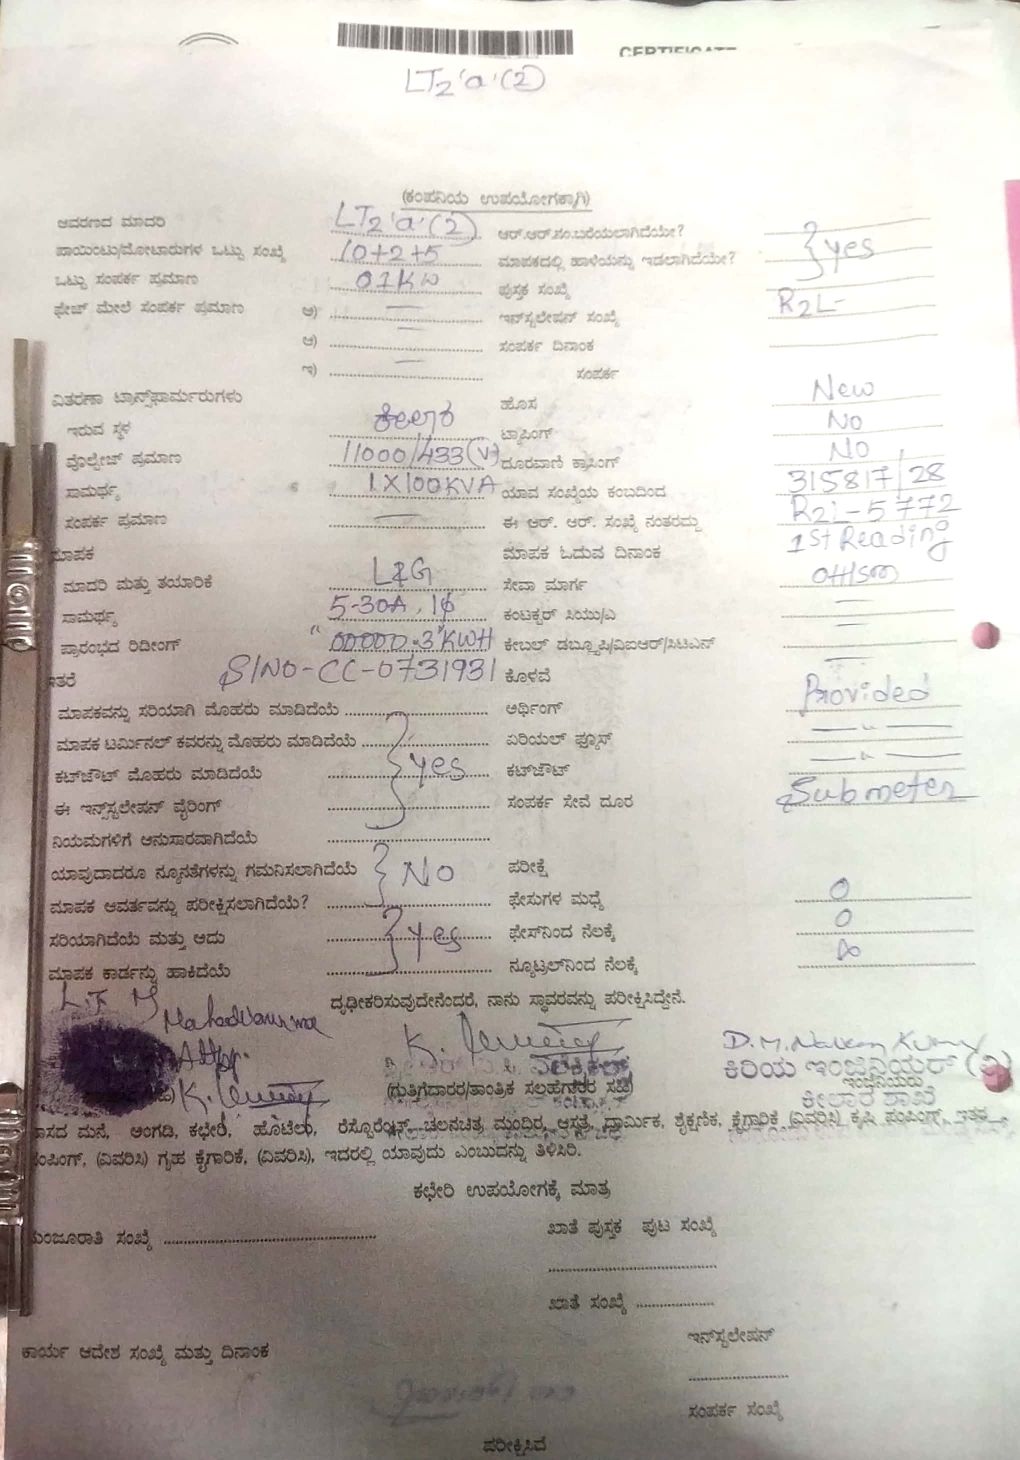 CERTIFICATE
LT2 'a' (2)
(ಕಂಪನಿಯ ಉಪಯೋಗಕ್ಕಾಗಿ)
ಆವರಣದ ಮಾದರಿ LT2 'a' (2) ಆರ್.ಆರ್.ನಂ.ಬರೆಯಲಾಗಿದೆಯೇ?
ಪಾಯಿಂಟು/ಮೋಟಾರುಗಳ ಒಟ್ಟು ಸಂಖ್ಯೆ 10+2+5 ಮಾಪಕದಲ್ಲಿ ಹಾಳೆಯನ್ನು ಇಡಲಾಗಿದೆಯೇ? } yes
ಒಟ್ಟು ಸಂಪರ್ಕ ಪ್ರಮಾಣ 01KW ಪುಸ್ತಕ ಸಂಖ್ಯೆ
ಫೇಜ್ ಮೇಲೆ ಸಂಪರ್ಕ ಪ್ರಮಾಣ ಅ) — ಇನ್‌ಸ್ಟಲೇಷನ್ ಸಂಖ್ಯೆ R2L-
ಆ) — ಸಂಪರ್ಕ ದಿನಾಂಕ
ಇ) — ಸಂಪರ್ಕ
ವಿತರಣಾ ಟ್ರಾನ್ಸ್‌ಫಾರ್ಮರುಗಳು ಹೊಸ New
ಇರುವ ಸ್ಥಳ ಕೀಲಾರ ಟ್ಯಾಪಿಂಗ್ No
ವೊಲ್ಟೇಜ್ ಪ್ರಮಾಣ 11000/433(V) ದೂರವಾಣಿ ಕ್ರಾಸಿಂಗ್ No
ಸಾಮರ್ಥ್ಯ 1X100KVA ಯಾವ ಸಂಖ್ಯೆಯ ಕಂಬದಿಂದ 315817/28
ಸಂಪರ್ಕ ಪ್ರಮಾಣ — ಈ ಆರ್. ಆರ್. ಸಂಖ್ಯೆ ನಂತರದ್ದು R2L-5772
ಮಾಪಕ ಮಾಪಕ ಓದುವ ದಿನಾಂಕ 1st Reading
ಮಾದರಿ ಮತ್ತು ತಯಾರಿಕೆ L&G ಸೇವಾ ಮಾರ್ಗ
ಸಾಮರ್ಥ್ಯ 5-30A, 1ϕ ಕಂಟಕ್ಟರ್ ಸಿಯು/ಎ —
ಪ್ರಾರಂಭದ ರಿಡೀಂಗ್ "00000.3" KWH ಕೇಬಲ್ ಡಬ್ಲ್ಯೂಪಿ/ವಿಐಆರ್/ಸಿಟಿಎಸ್ —
ಇತರೆ S/NO-CC-0731931 ಕೊಳವೆ —
ಮಾಪಕವನ್ನು ಸರಿಯಾಗಿ ಮೊಹರು ಮಾಡಿದೆಯೆ ಅರ್ಥಿಂಗ್ Provided
ಮಾಪಕ ಟರ್ಮಿನಲ್ ಕವರನ್ನು ಮೊಹರು ಮಾಡಿದೆಯೆ ಏರಿಯಲ್ ಫ್ಯೂಸ್ — " —
ಕಟ್‌ಜೌಟ್ ಮೊಹರು ಮಾಡಿದೆಯೆ } yes ಕಟ್‌ಜೌಟ್ — " —
ಈ ಇನ್ಸ್‌ಸ್ಟಲೇಷನ್ ವೈರಿಂಗ್ ಸಂಪರ್ಕ ಸೇವೆ ದೂರ Submeter
ನಿಯಮಗಳಿಗೆ ಆನುಸಾರವಾಗಿದೆಯೆ
ಯಾವುದಾದರೂ ನ್ಯೂನತೆಗಳನ್ನು ಗಮನಿಸಲಾಗಿದೆಯೆ } No ಪರೀಕ್ಷೆ
ಮಾಪಕ ಆವರ್ತವನ್ನು ಪರೀಕ್ಷಿಸಲಾಗಿದೆಯೆ? ಫೇಸುಗಳ ಮಧ್ಯೆ 0
ಸರಿಯಾಗಿದೆಯೆ ಮತ್ತು ಅದು } yes ಫೇಸ್‌ನಿಂದ ನೆಲಕ್ಕೆ 0
ಮಾಪಕ ಕಾರ್ಡನ್ನು ಹಾಕಿದೆಯೆ ನ್ಯೂಟ್ರಲ್‌ನಿಂದ ನೆಲಕ್ಕೆ ∞
ದೃಢೀಕರಿಸುವುದೇನೆಂದರೆ, ನಾನು ಸ್ಥಾವರವನ್ನು ಪರೀಕ್ಷಿಸಿದ್ದೇನೆ.
D.M.
ಕಿರಿಯ ಇಂಜಿನಿಯರ್ (ವಿ)
(ಗುತ್ತಿಗೆದಾರರ/ತಾಂತ್ರಿಕ ಸಲಹೆಗಾರರ ಸಹಿ) ಇಂಜಿನಿಯರು
ಕೀಲಾರ ಶಾಖೆ
ವಾಸದ ಮನೆ, ಅಂಗಡಿ, ಕಛೇರಿ, ಹೊಟೆಲು, ರೆಸ್ಟೊರೆಂಟ್, ಚಲನಚಿತ್ರ ಮಂದಿರ, ಆಸ್ಪತ್ರೆ, ಧಾರ್ಮಿಕ, ಶೈಕ್ಷಣಿಕ, ಕೈಗಾರಿಕೆ (ವಿವರಿಸಿ) ಕೃಷಿ ಪಂಪಿಂಗ್, ಇತರ
ಪಂಪಿಂಗ್, (ವಿವರಿಸಿ) ಗೃಹ ಕೈಗಾರಿಕೆ, (ವಿವರಿಸಿ), ಇದರಲ್ಲಿ ಯಾವುದು ಎಂಬುದನ್ನು ತಿಳಿಸಿರಿ.
ಕಛೇರಿ ಉಪಯೋಗಕ್ಕೆ ಮಾತ್ರ
ಮಂಜೂರಾತಿ ಸಂಖ್ಯೆ ಖಾತೆ ಪುಸ್ತಕ ಪುಟ ಸಂಖ್ಯೆ
ಖಾತೆ ಸಂಖ್ಯೆ
ಇನ್‌ಸ್ಟಲೇಷನ್
ಕಾರ್ಯ ಆದೇಶ ಸಂಖ್ಯೆ ಮತ್ತು ದಿನಾಂಕ
ಸಂಪರ್ಕ ಸಂಖ್ಯೆ
ಪರೀಕ್ಷಿಸಿದ